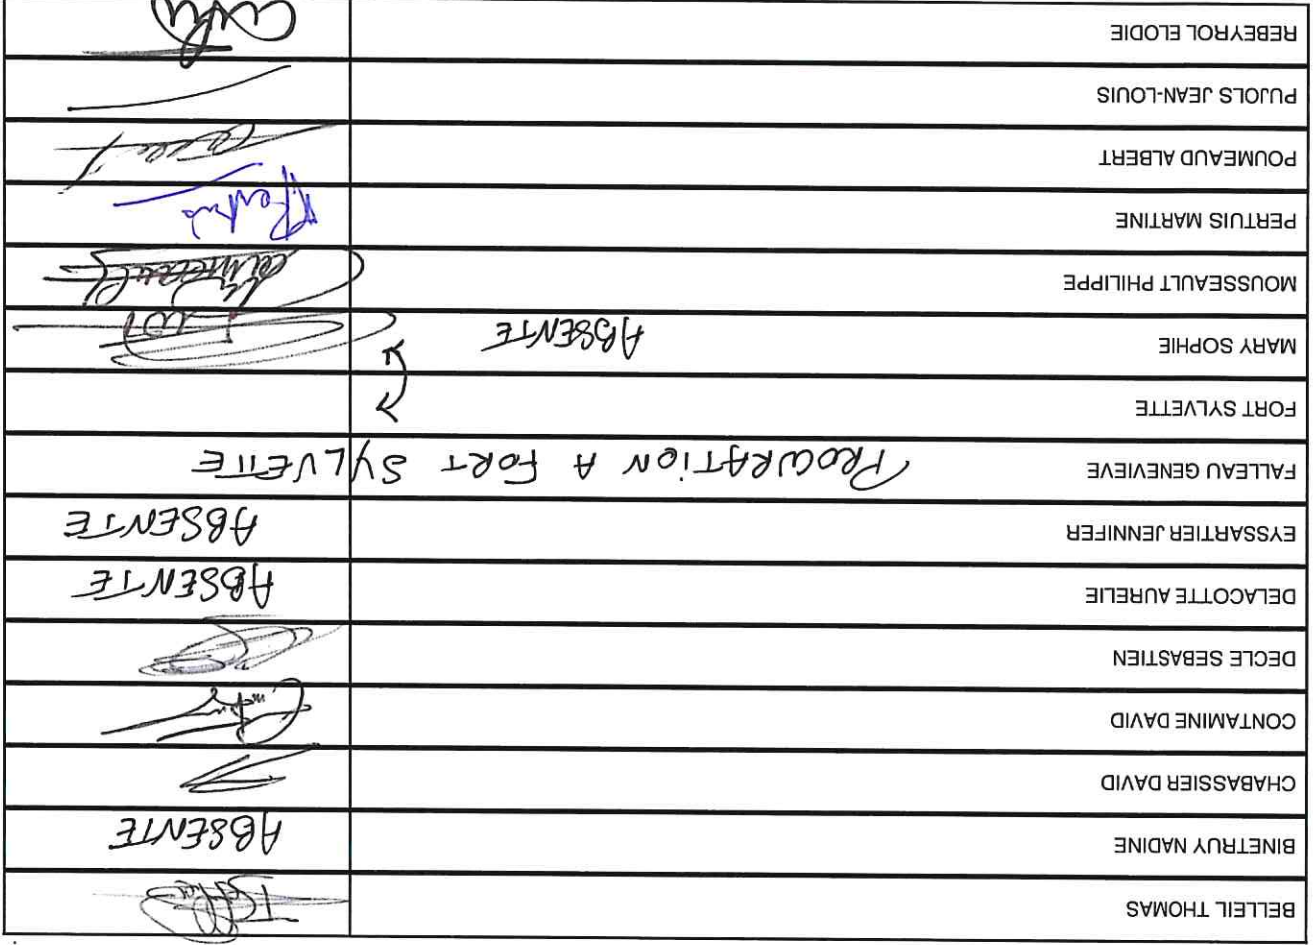 BELLEIL THOMAS
BINETRUY NADINE ABSENTE
CHABASSIER DAVID
CONTAMINE DAVID
DECLE SEBASTIEN
DELACOTTE AURELIE ABSENTE
EYSSARTIER JENNIFER ABSENTE
FALLEAU GENEVIEVE PROCURATION A FORT SYLVETTE
FORT SYLVETTE
MARY SOPHIE ABSENTE
MOUSSEAULT PHILIPPE
PERTUIS MARTINE
POUMEAUD ALBERT
PUJOLS JEAN-LOUIS
REBEYROL ELODIE